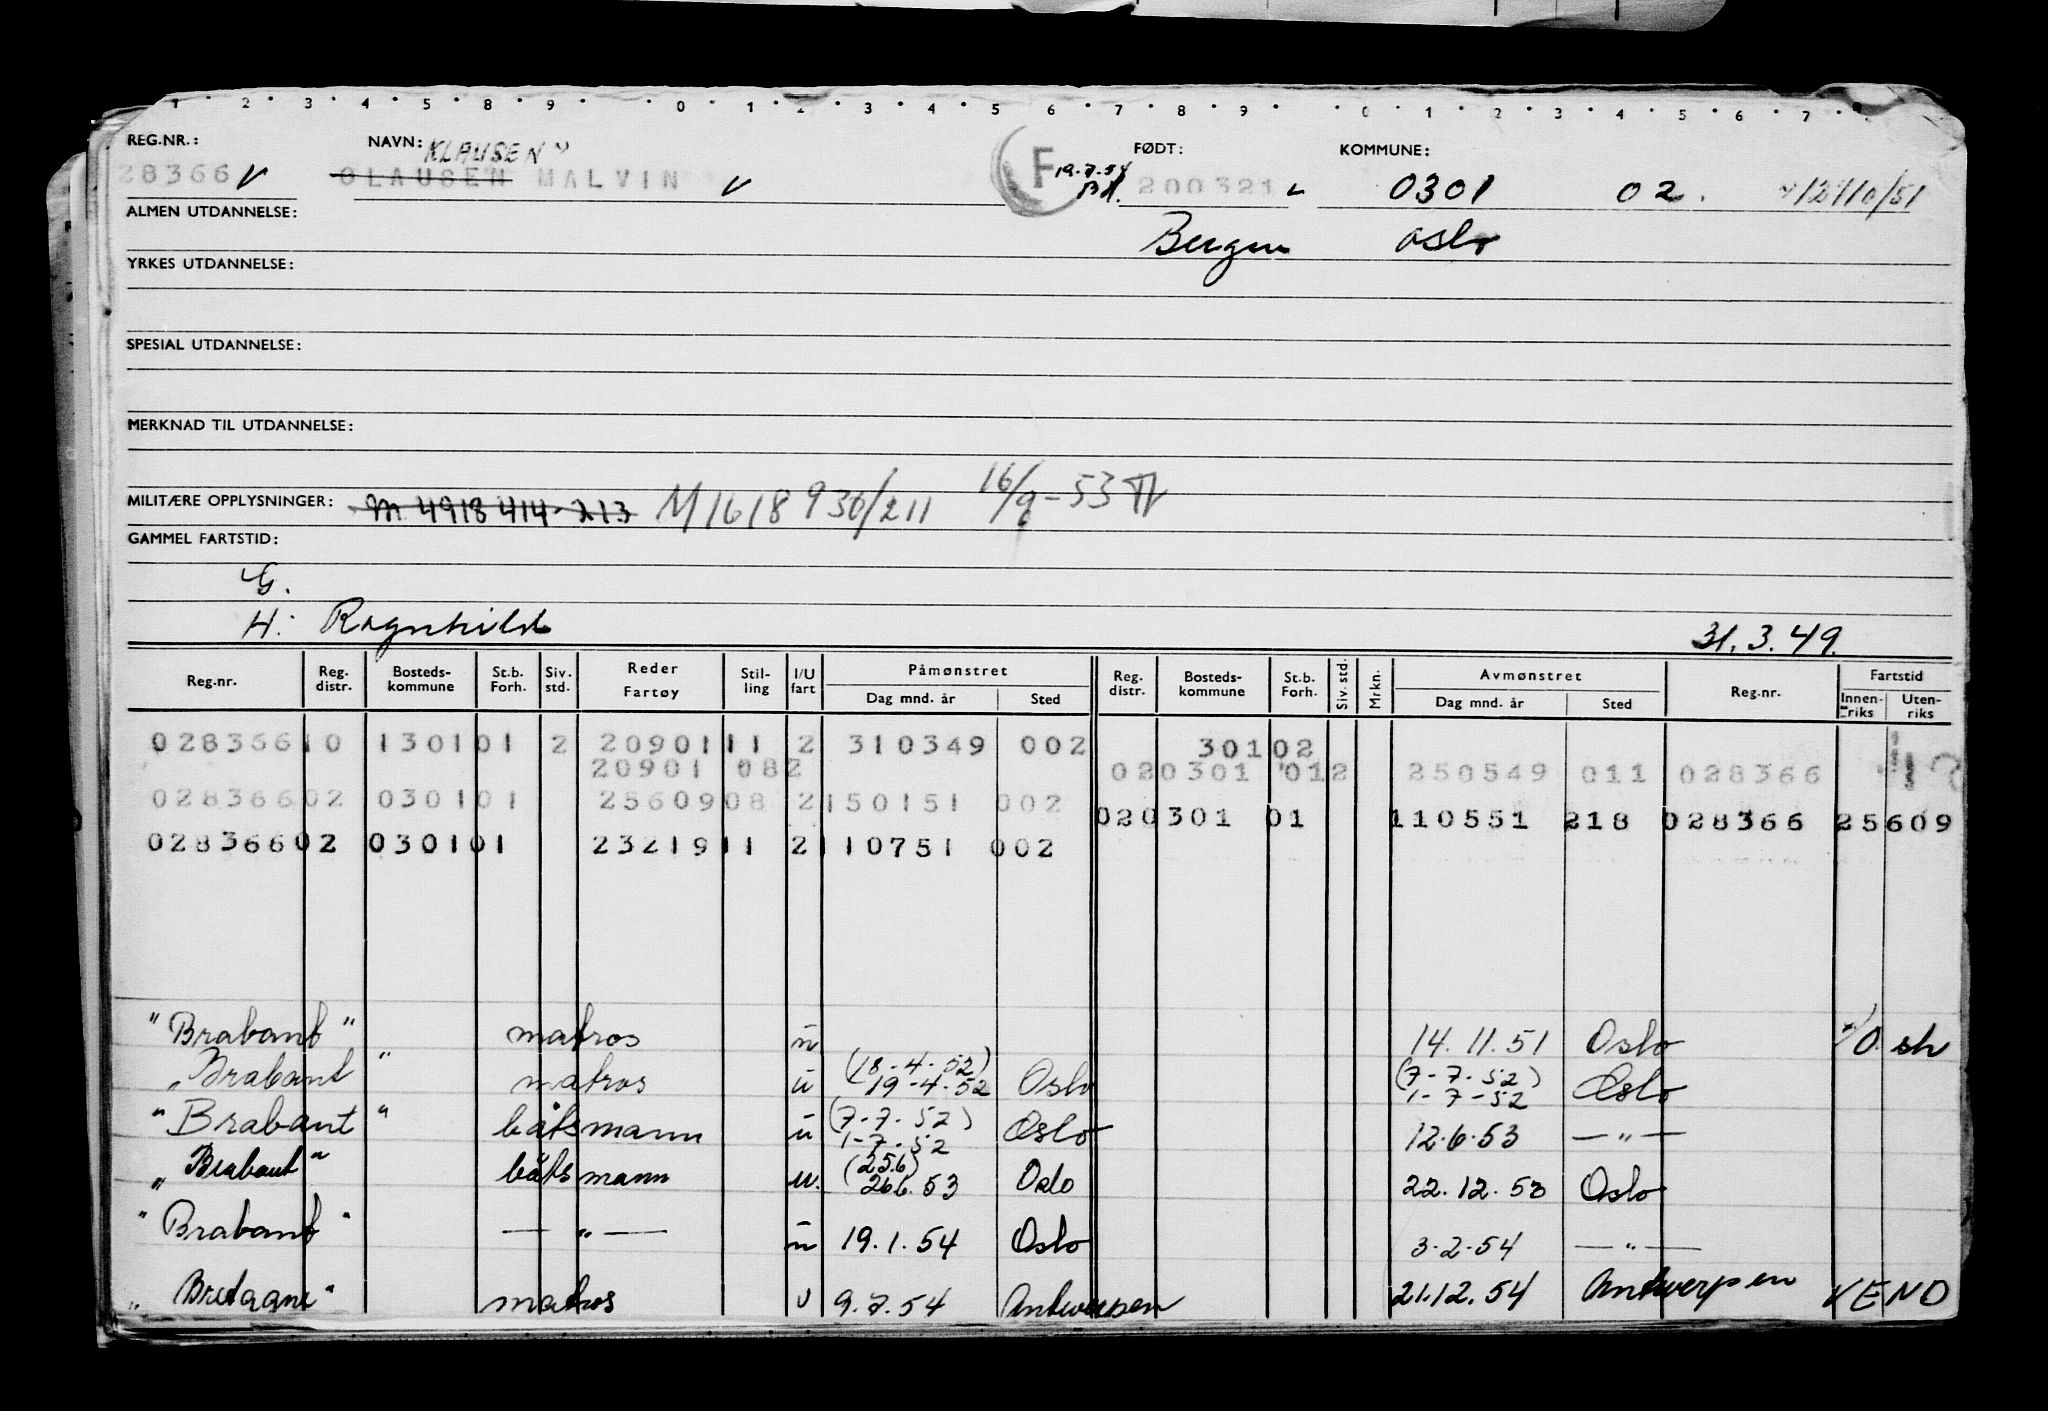 1 · 2 · 3 · 4 · 5 · 8 · 9 · 0 · 1 · 2 · 3 · 4 · 5 · 6 · 7 · 8 · 9 · 0 · 1 · 2 · 3 · 4 · 5 · 6 · 7 ·
REG.NR.: NAVN: KLAUSEN FØDT: KOMMUNE:
28366 OLAUSEN MALVIN F 19.7.54 200321 0301 02.
ALMEN UTDANNELSE: Bergen Oslo
YRKES UTDANNELSE:
SPESIAL UTDANNELSE:
MERKNAD TIL UTDANNELSE:
MILITÆRE OPPLYSNINGER: M 4918 414-213 M 1618 936/211 16/9-53
GAMMEL FARTSTID:
G.
H: Ragnhild 31.3.49.
Reg.nr. Reg. distr. Bosteds-kommune St.b. Forh. Siv. std. Reder Fartøy Stil-ling I/U fart Påmønstret Dag mnd. år Sted Reg. distr. Bosteds-kommune St.b. Forh. Siv. std. Mrkn. Avmønstret Dag mnd. år Sted Reg.nr. Fartstid Innen-riks Uten-riks
028366 10 1301 01 2 20901 11 2 310349 002 301 02
20901 082 020301 012 250549 011 028366
028366 02 0301 01 25609 08 2 150151 002
020301 01 110551 218 028366 25609
028366 02 0301 01 23219 11 2 110751 002
"Brabant" matros u 14.11.51 Oslo
"Brabant" matros u (18-4-52) 19-4-52 Oslo (7-7-52) 1-7-52 Oslo
"Brabant" båtsmann u (7-7-52) 1-7-52 Oslo 12.6.53 — " —
"Brabant" båtsmann u. (25.6) 26.6.53 Oslo 22.12.53 Oslo
"Brabant" — " — u 19.1.54 Oslo 3.2.54 — " —
"Bretagne" matros u 9.7.54 Antwerpen 21.12.54 Antwerpen VEND